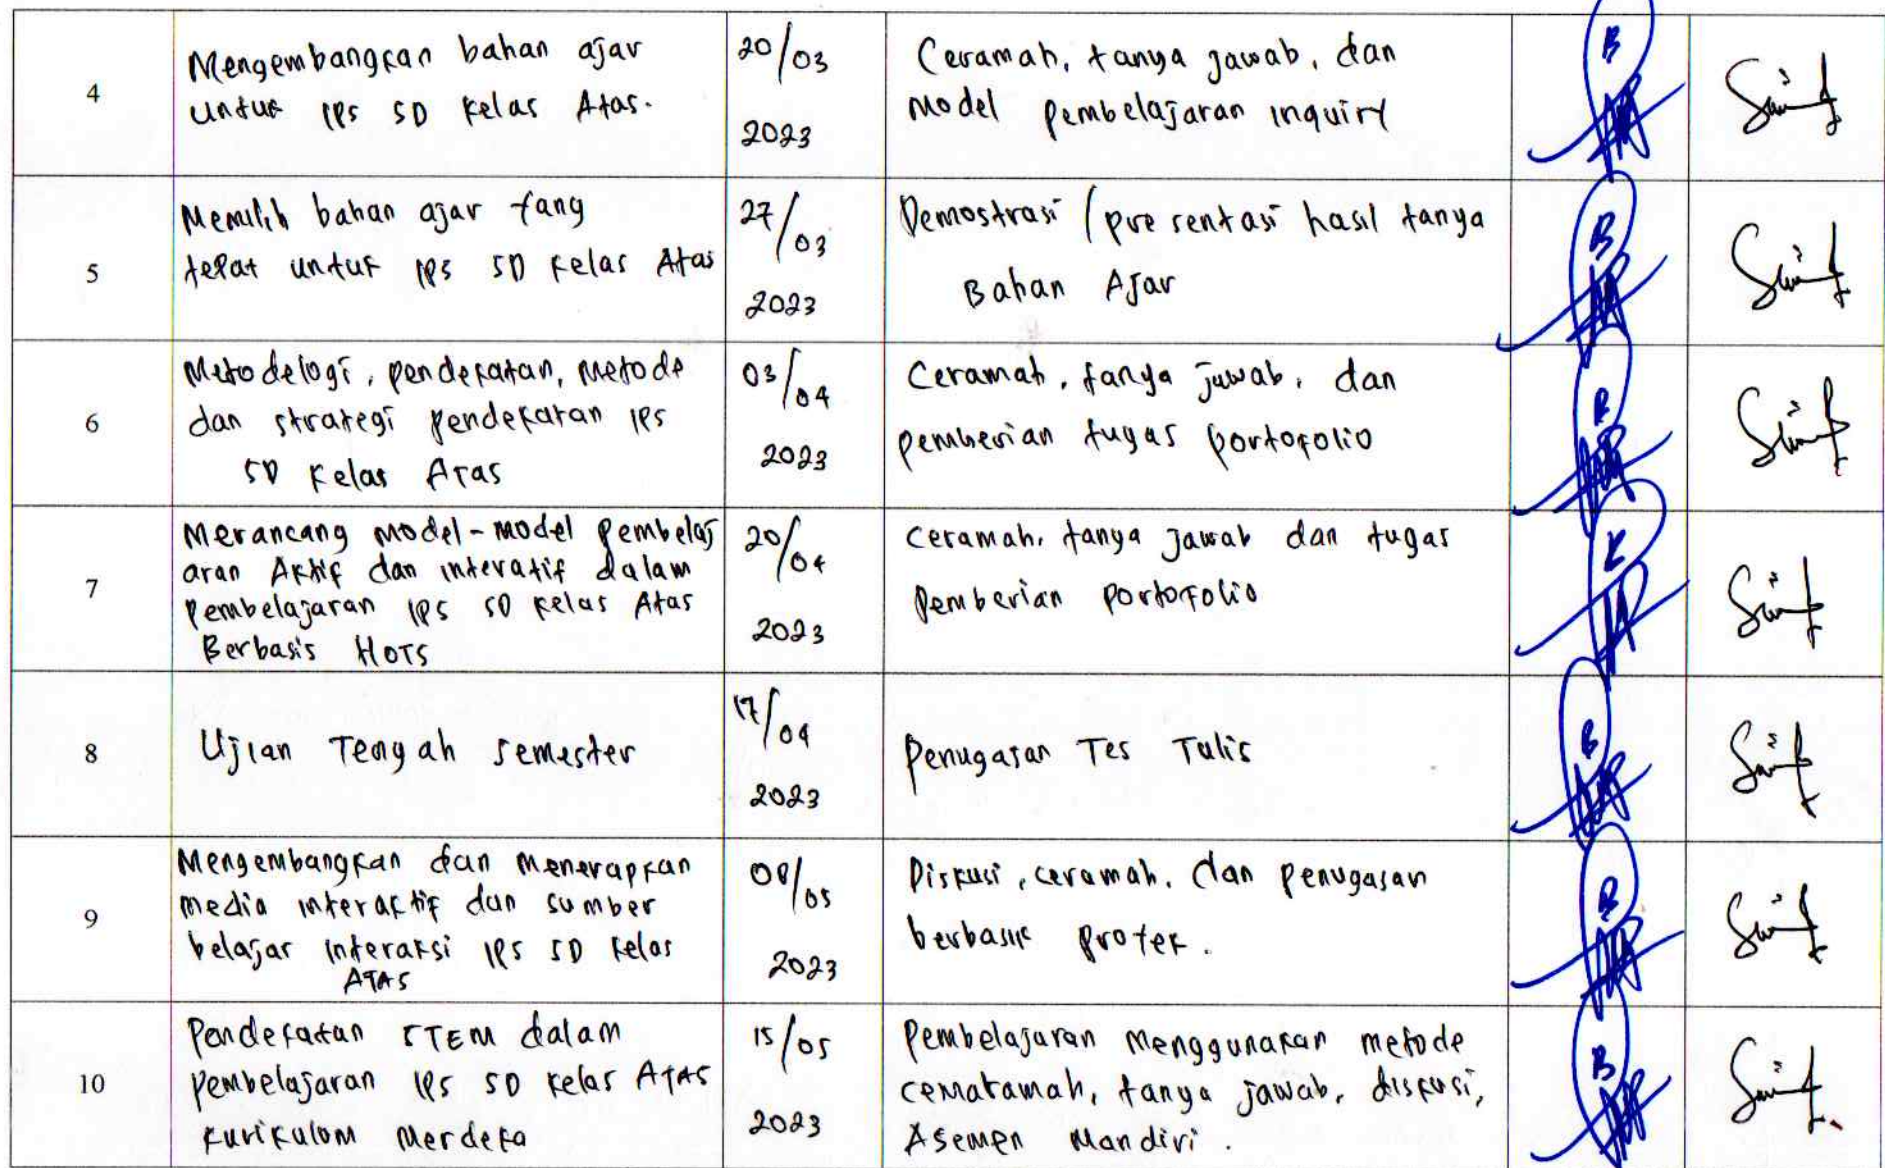 4
Mengembangkan bahan ajar
untuk IPS SD kelas Atas.
20/03
2023
Ceramah, tanya jawab, dan
model pembelajaran inquiry
5
Memilih bahan ajar yang
tepat untuk IPS SD kelas Atas
27/03
2023
Demostrasi / presentasi hasil tanya
Bahan Ajar
6
Metodelogi, pendekatan, metode
dan strategi pendekatan IPS
SD kelas Atas
03/04
2023
Ceramah, tanya jawab, dan
pemberian tugas portofolio
7
Merancang model-model pembelaj
aran Aktif dan interatif dalam
pembelajaran IPS SD kelas Atas
Berbasis HOTS
20/04
2023
Ceramah, tanya jawab dan tugas
pemberian portofolio
8
Ujian Tengah semester
17/04
2023
Penugasan Tes Tulis
9
Mengembangkan dan menerapkan
media interaktif dan sumber
belajar interaksi IPS SD kelas
ATAS
08/05
2023
Diskusi, ceramah, dan penugasan
berbasis
10
Pendekatan STEM dalam
pembelajaran IPS SD kelas ATAS
kurikulum Merdeka
15/05
2023
Pembelajaran menggunakan metode
tanya jawab, diskusi,
Asemen Mandiri.